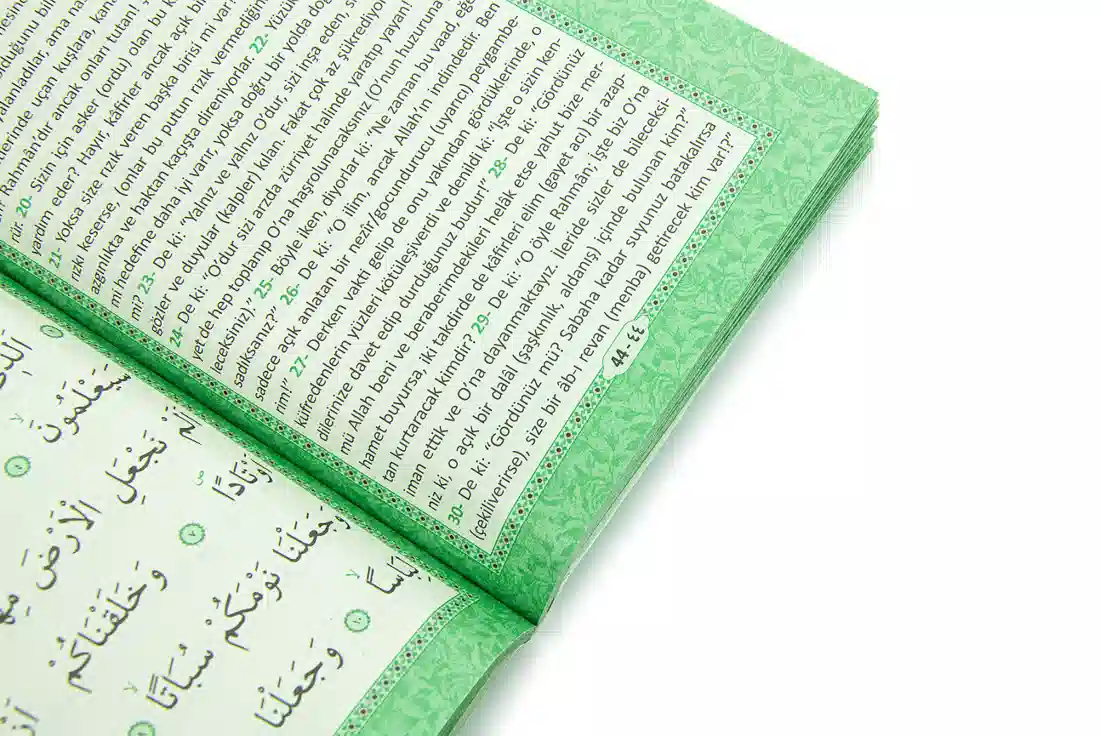 lerinde uçan kuşlara, kan
Rahman'dır ancak onları tutan! Ş
tür. 20- Sizin için asker (ordu) olan bu k
yardım eder? Hayır, kâfirler ancak açık bir
21- Yoksa size rızık veren başka birisi mi var
rızkı keserse, (onlar bu putun rızık vermediğin
azgınlıkta ve haktan kaçışta direniyorlar. 22- Yüzük
mi hedefine daha iyi varır, yoksa doğru bir yolda doğ
mi? 23- De ki: "Yalnız ve yalnız O'dur, sizi inşa eden, s
gözler ve duyular (kalpler) kılan. Fakat çok az şükrediyor
24- De ki: "O'dur sizi arzda zürriyet halinde yaratıp yayan!
yet de hep toplanıp O'na haşrolunacaksınız (O'nun huzuruna
leceksiniz)." 25- Böyle iken, diyorlar ki: "Ne zaman bu vaad, eğe
sadıksanız?" 26- De ki: "O ilim, ancak Allah'ın indindedir. Ben
sadece açık anlatan bir nezîr/gocundurucu (uyarıcı) peygambe-
rim!" 27- Derken vakti gelip de onu yakından gördüklerinde, o
küfredenlerin yüzleri kötüleşiverdi ve denildi ki: "İşte o sizin ken-
dilerinize davet edip durduğunuz budur!" 28- De ki: "Gördünüz
mü Allah beni ve beraberimdekileri helâk etse yahut bize mer-
hamet buyursa, iki takdirde de kâfirleri elim (gayet acı) bir azap-
tan kurtaracak kimdir? 29- De ki: "O öyle Rahmân; işte biz O'na
iman ettik ve O'na dayanmaktayız. İleride sizler de bileceksi-
niz ki, o açık bir dalâl (şaşkınlık, aldanış) içinde bulunan kim?"
30- De ki: "Gördünüz mü? Sabaha kadar suyunuz batakalırsa
(çekiliverirse), size bir âb-ı revan (menba) getirecek kim var!?"
44 - ٤٤
سَيَعْلَمُونَ
اَلَمْ نَجْعَلِ الْاَرْضَ
اَوْتَادًا
وَخَلَقْنَاكُمْ
وَجَعَلْنَا نَوْمَكُمْ سُبَاتًا
لِبَاسًا
وَجَعَلْنَا